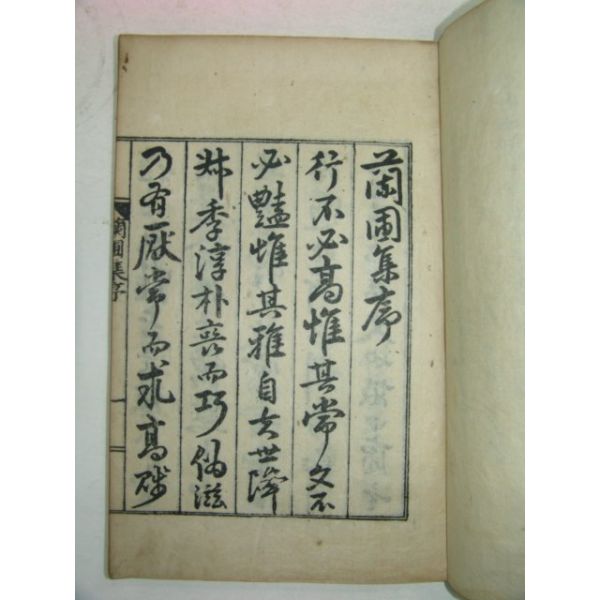 蘭圃集序
行不必高惟其常文不
必豔惟其雅自夫世降
叔季淳朴喪而巧僞滋
乃有厭常而求高
蘭圃集序
一